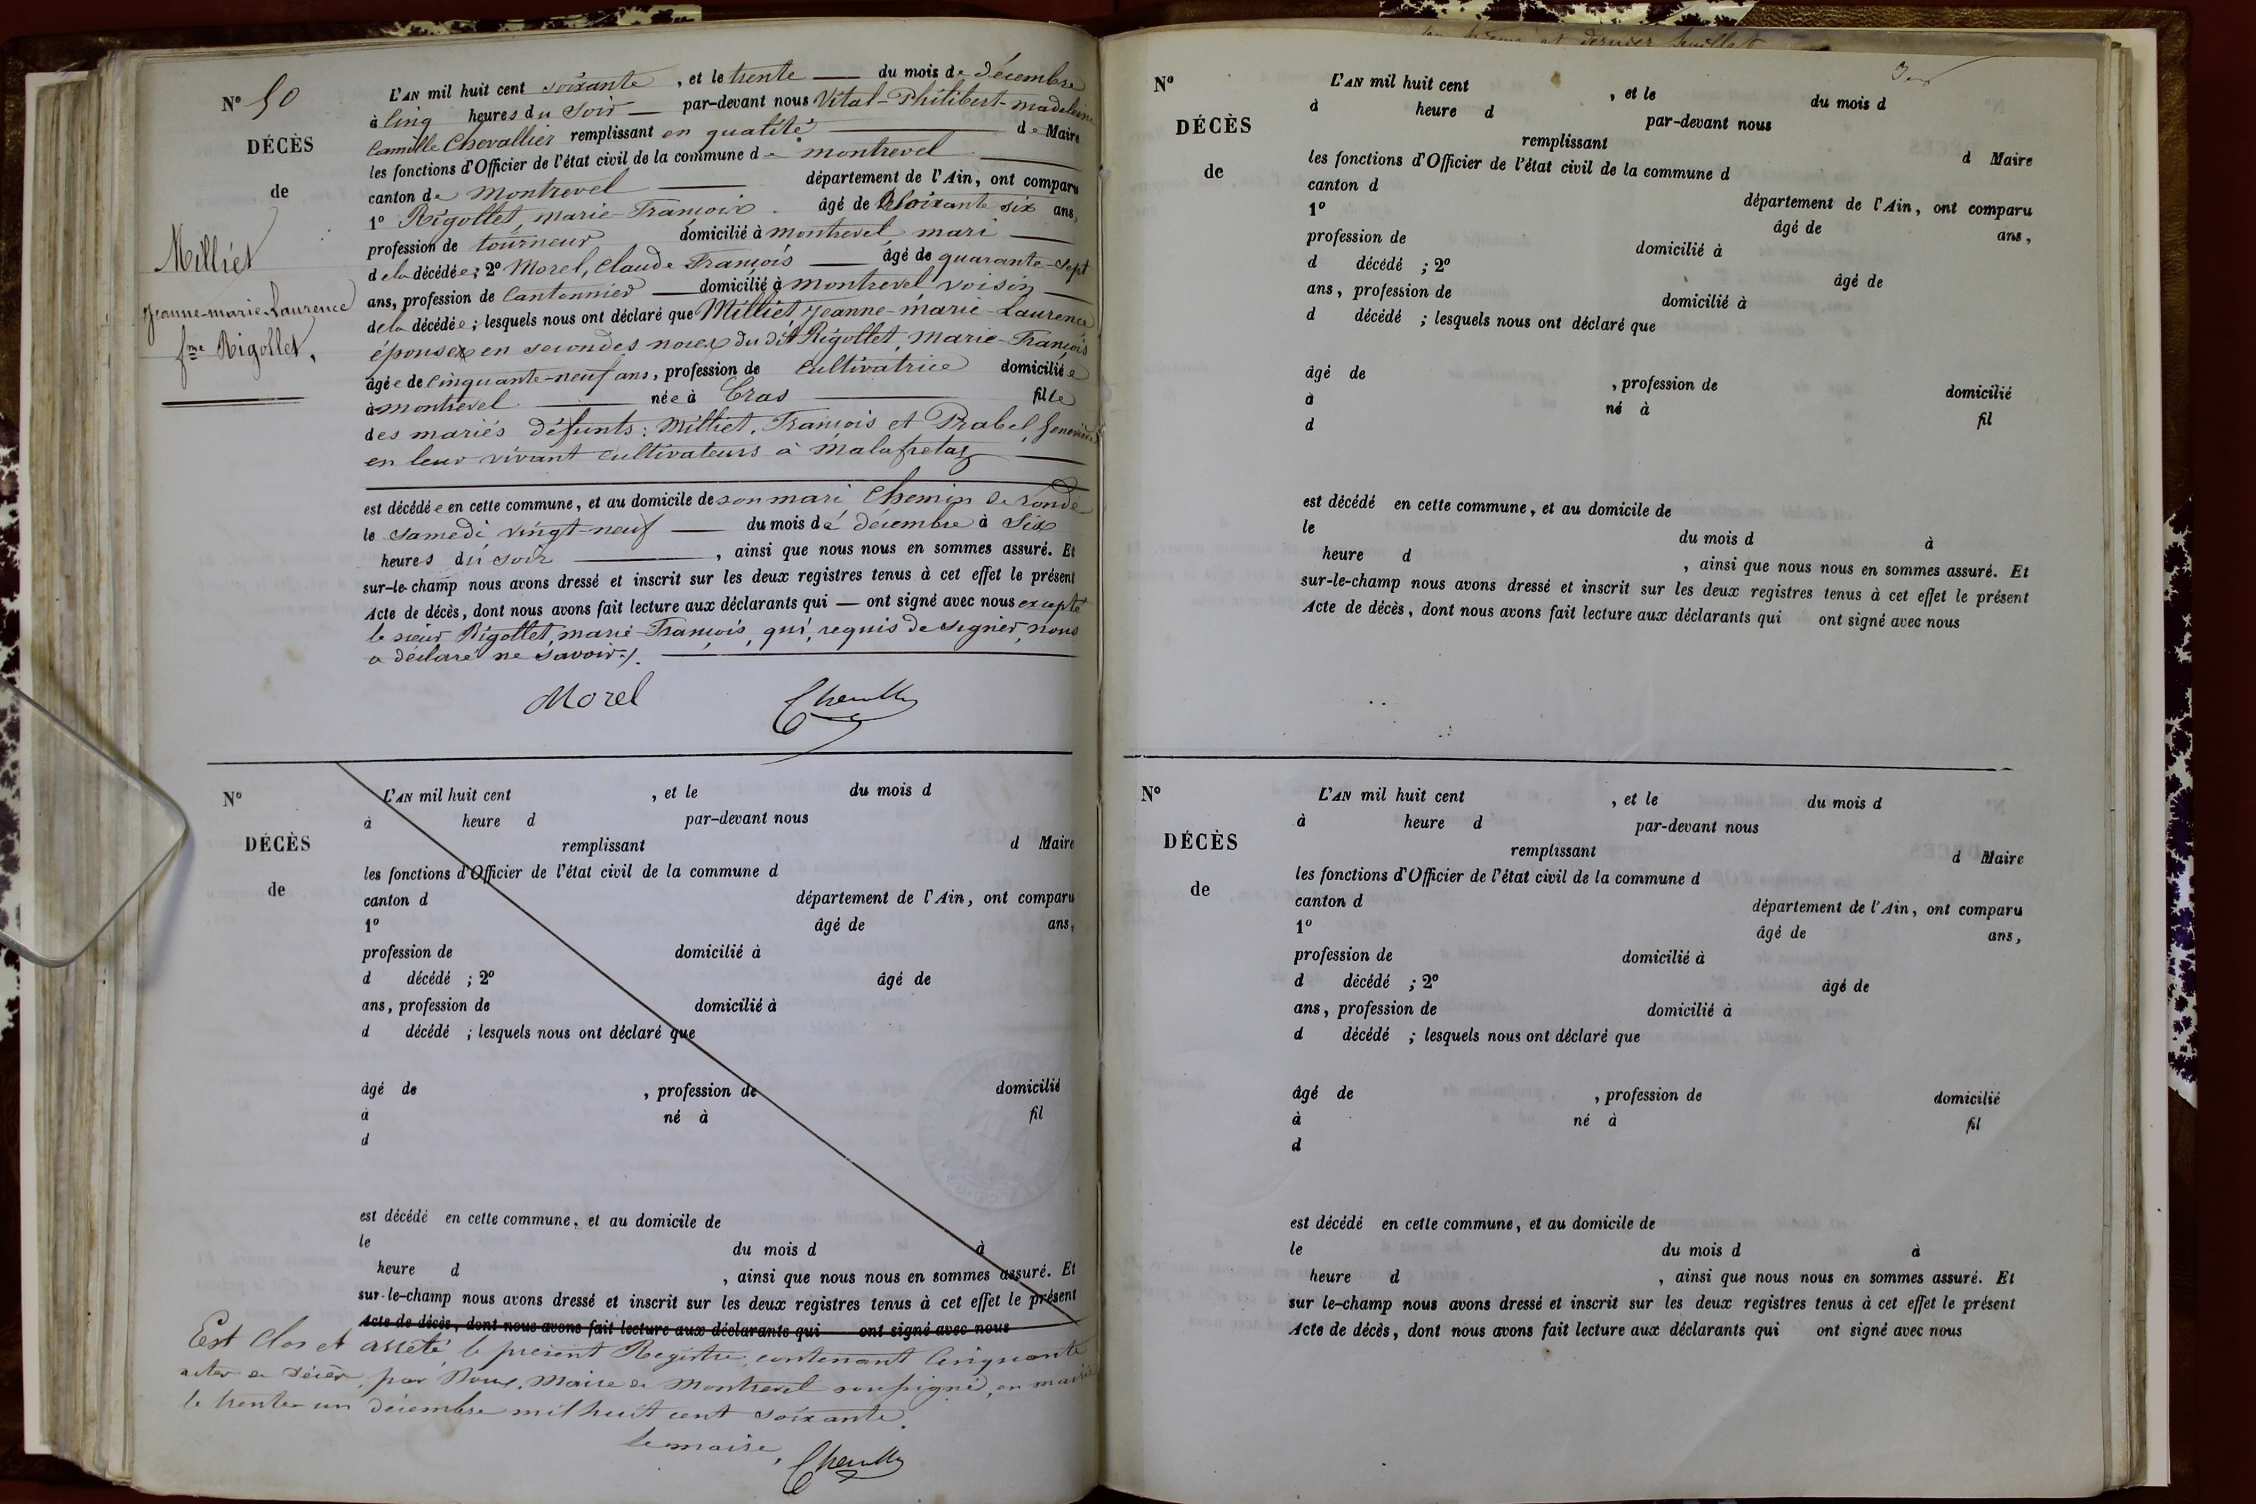 Nº 50
DÉCÈS
de
Milliet
Jeanne-marie-Laurence
fme Rigollet,
L'AN mil huit cent soixante, et le trente — du mois de décembre
à Cinq heures du Soir — par-devant nous Vital-Philibert-madeleine
Camille Chevallier remplissant en qualité — de Maire
les fonctions d'Officier de l'état civil de la commune de montrevel —
canton de Montrevel — département de l'Ain, ont comparu
1º Rigollet, marie-François. âgé de soixante six ans,
profession de tourneur domicilié à montrevel, mari —
de la décédée; 2º Morel, Claude François — âgé de quarante-sept
ans, profession de Cantonnier — domicilié à montrevel voisin —
de la décédée; lesquels nous ont déclaré que Milliet Jeanne-marie-Laurence
épouse en secondes noces du dit Rigollet, Marie-François
âgée de cinquante-neuf ans, profession de cultivatrice domiciliée
à montrevel — née à Cras — fille
des mariés défunts: Milliet, François et Prabel,
en leur vivant cultivateurs à Malafretaz —
est décédée en cette commune, et au domicile de son mari Chemin de ronde
le Samedi vingt-neuf — du mois de décembre à Six
heures du soir —, ainsi que nous nous en sommes assuré. Et
sur-le-champ nous avons dressé et inscrit sur les deux registres tenus à cet effet le présent
Acte de décès, dont nous avons fait lecture aux déclarants qui — ont signé avec nous excepté
le sieur Rigollet, marie-François, qui, requis de signer, nous
a déclaré ne savoir./. —
Morel
Nº
DÉCÈS
de
L'AN mil huit cent , et le du mois d
à heure d par-devant nous
remplissant d Maire
les fonctions d'Officier de l'état civil de la commune d
canton d département de l'Ain, ont comparu
1º âgé de ans,
profession de domicilié à
d décédé ; 2º âgé de
ans, profession de domicilié à
d décédé ; lesquels nous ont déclaré que
âgé de , profession de domicilié
à né à fil
d
est décédé en cette commune, et au domicile de
le du mois d à
heure d , ainsi que nous nous en sommes assuré. Et
sur-le-champ nous avons dressé et inscrit sur les deux registres tenus à cet effet le présent
Acte de décès, dont nous avons fait lecture aux déclarants qui ont signé avec nous
Est Clos et arrêté le présent Registre, contenant Cinquante
actes de Décès, par Nous, Maire de Montrevel soussigné, en mairie
le trente un décembre mil huit cent soixante.
le maire,
Nº
DÉCÈS
de
L'AN mil huit cent , et le du mois d
à heure d par-devant nous
remplissant d Maire
les fonctions d'Officier de l'état civil de la commune d
canton d département de l'Ain, ont comparu
1º âgé de ans,
profession de domicilié à
d décédé ; 2º âgé de
ans, profession de domicilié à
d décédé ; lesquels nous ont déclaré que
âgé de , profession de domicilié
à né à fil
d
est décédé en cette commune, et au domicile de
le du mois d à
heure d , ainsi que nous nous en sommes assuré. Et
sur-le-champ nous avons dressé et inscrit sur les deux registres tenus à cet effet le présent
Acte de décès, dont nous avons fait lecture aux déclarants qui ont signé avec nous
Nº
DÉCÈS
de
L'AN mil huit cent , et le du mois d
à heure d par-devant nous
remplissant d Maire
les fonctions d'Officier de l'état civil de la commune d
canton d département de l'Ain, ont comparu
1º âgé de ans,
profession de domicilié à
d décédé ; 2º âgé de
ans, profession de domicilié à
d décédé ; lesquels nous ont déclaré que
âgé de , profession de domicilié
à né à fil
d
est décédé en cette commune, et au domicile de
le du mois d à
heure d , ainsi que nous nous en sommes assuré. Et
sur le-champ nous avons dressé et inscrit sur les deux registres tenus à cet effet le présent
Acte de décès, dont nous avons fait lecture aux déclarants qui ont signé avec nous